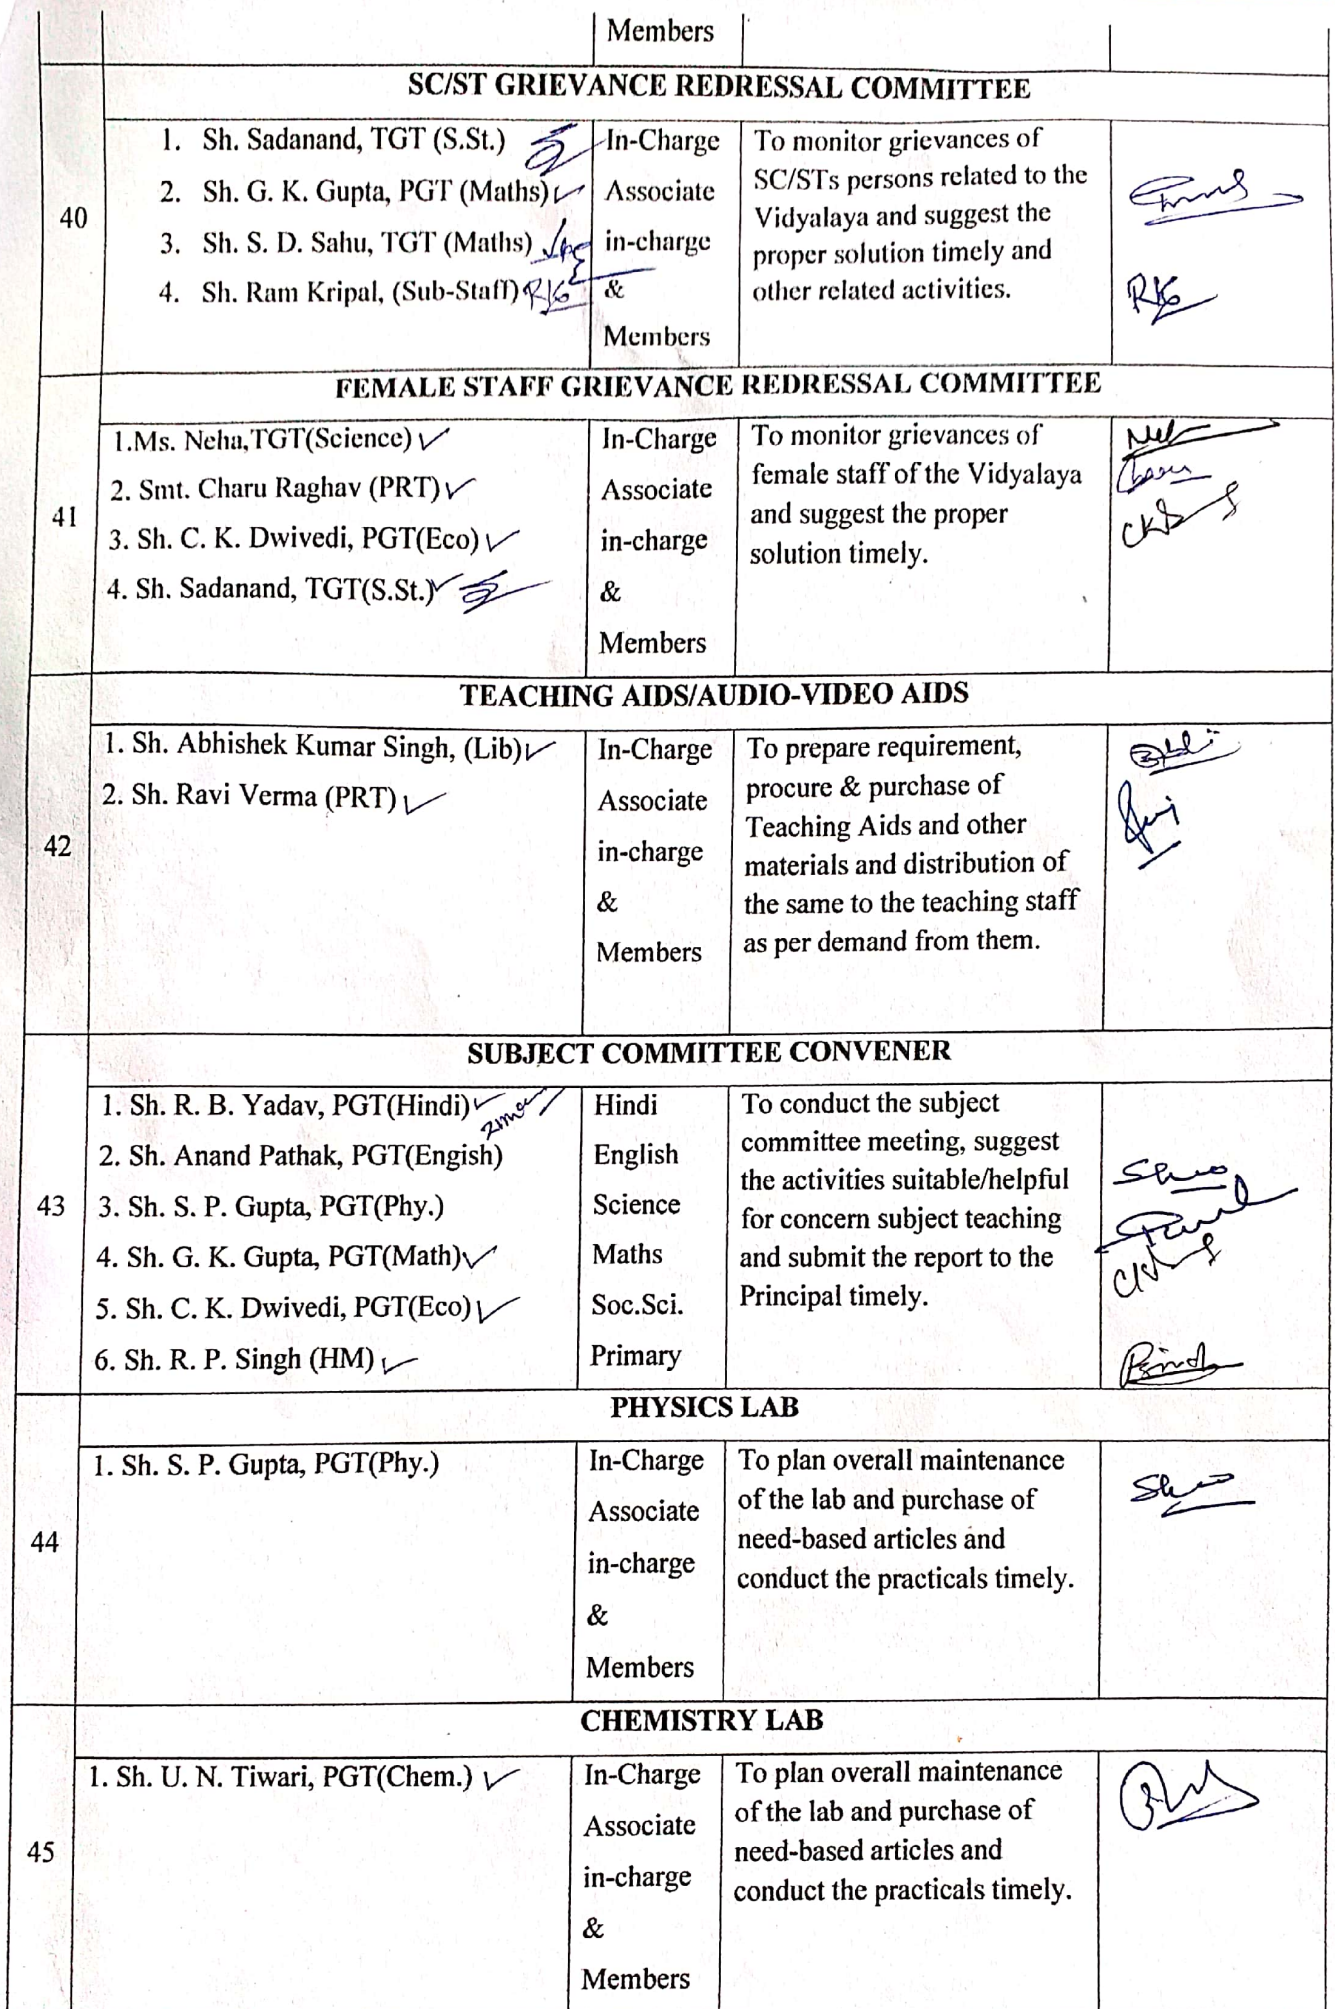 Members
SC/ST GRIEVANCE REDRESSAL COMMITTEE
40
1. Sh. Sadanand, TGT (S.St.)
2. Sh. G. K. Gupta, PGT (Maths)
3. Sh. S. D. Sahu, TGT (Maths)
4. Sh. Ram Kripal, (Sub-Staff) RK
In-Charge
Associate
in-charge
&
Members
To monitor grievances of
SC/STs persons related to the
Vidyalaya and suggest the
proper solution timely and
other related activities.
RK
FEMALE STAFF GRIEVANCE REDRESSAL COMMITTEE
41
1.Ms. Neha,TGT(Science)
2. Smt. Charu Raghav (PRT)
3. Sh. C. K. Dwivedi, PGT(Eco)
4. Sh. Sadanand, TGT(S.St.)
In-Charge
Associate
in-charge
&
Members
To monitor grievances of
female staff of the Vidyalaya
and suggest the proper
solution timely.
TEACHING AIDS/AUDIO-VIDEO AIDS
42
1. Sh. Abhishek Kumar Singh, (Lib)
2. Sh. Ravi Verma (PRT)
In-Charge
Associate
in-charge
&
Members
To prepare requirement,
procure & purchase of
Teaching Aids and other
materials and distribution of
the same to the teaching staff
as per demand from them.
SUBJECT COMMITTEE CONVENER
43
1. Sh. R. B. Yadav, PGT(Hindi)
2. Sh. Anand Pathak, PGT(Engish)
3. Sh. S. P. Gupta, PGT(Phy.)
4. Sh. G. K. Gupta, PGT(Math)
5. Sh. C. K. Dwivedi, PGT(Eco)
6. Sh. R. P. Singh (HM)
Hindi
English
Science
Maths
Soc.Sci.
Primary
To conduct the subject
committee meeting, suggest
the activities suitable/helpful
for concern subject teaching
and submit the report to the
Principal timely.
PHYSICS LAB
44
1. Sh. S. P. Gupta, PGT(Phy.)
In-Charge
Associate
in-charge
&
Members
To plan overall maintenance
of the lab and purchase of
need-based articles and
conduct the practicals timely.
CHEMISTRY LAB
45
1. Sh. U. N. Tiwari, PGT(Chem.)
In-Charge
Associate
in-charge
&
Members
To plan overall maintenance
of the lab and purchase of
need-based articles and
conduct the practicals timely.